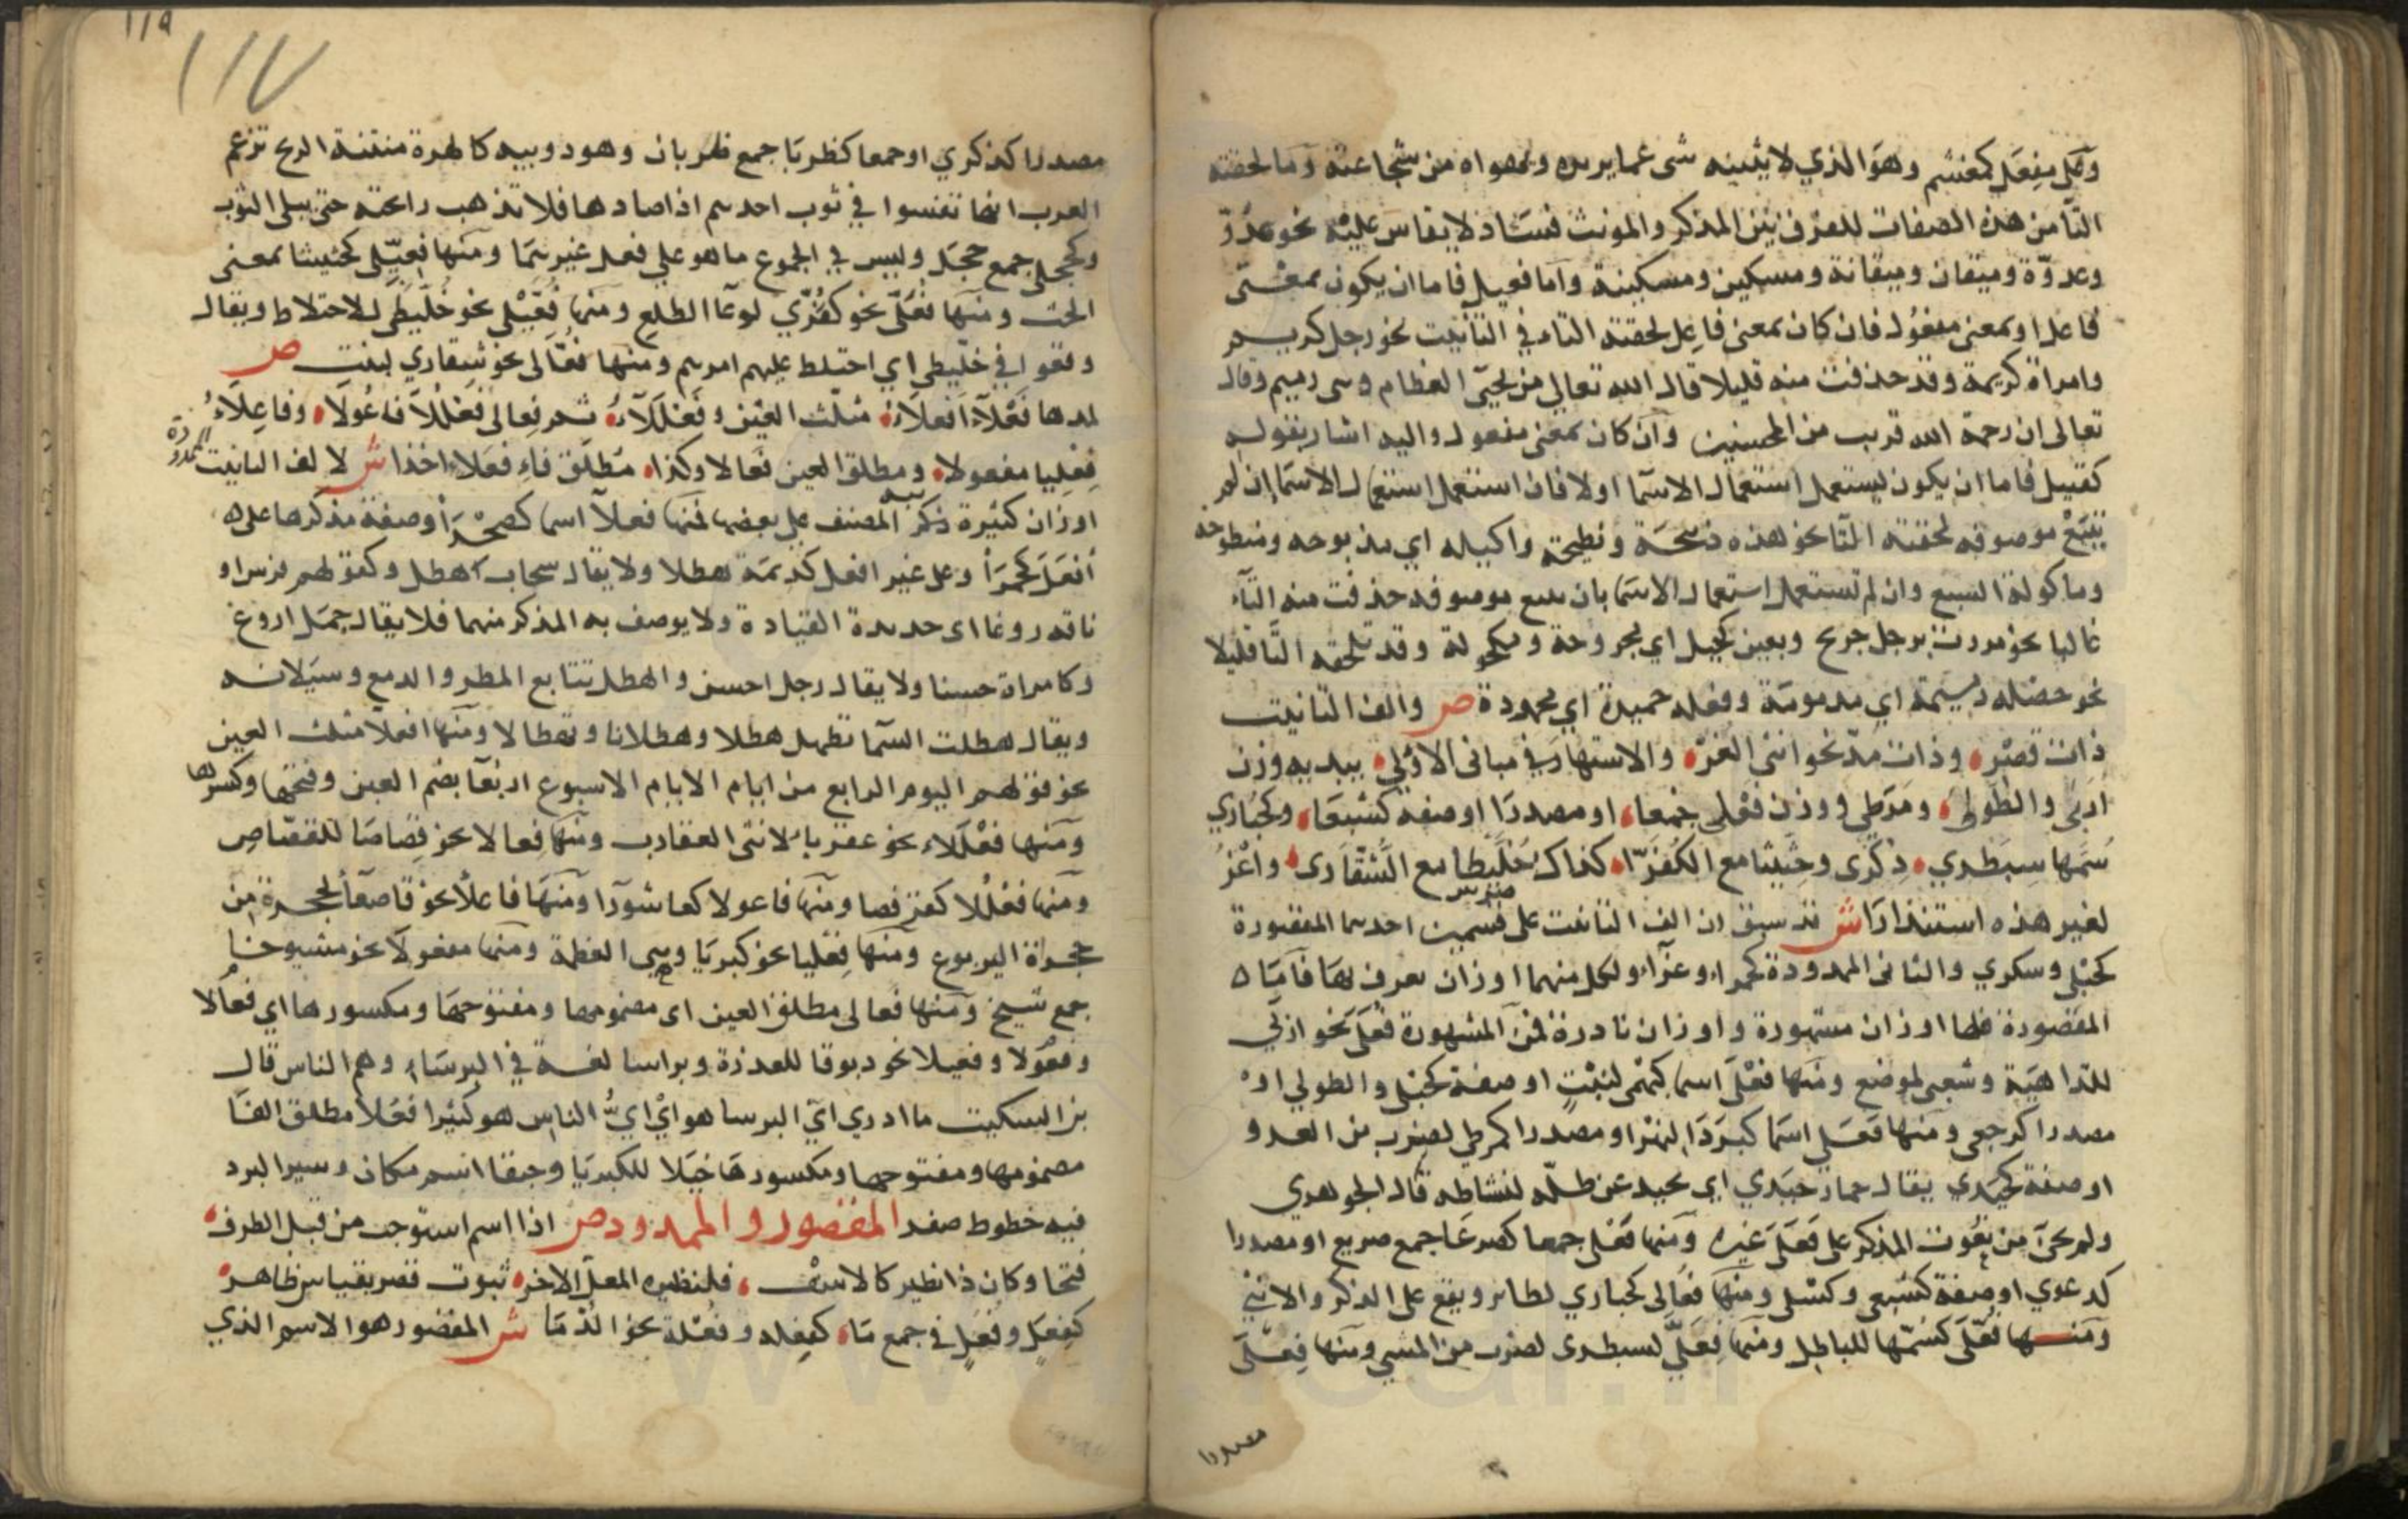 وعلى مفعل كمغشم وهو الذي لا يثنيه شى عما يريده ويهواه من شجاعته وما لحقته
التا من هذه الصفات للفرق بين المذكر والمونث فشاذ لا يقاس عليه نحو عدو
وعدوة وميقان وميقانة ومسكين ومسكينة واما فعيل فاما ان يكون بمعنى
فاعل او بمعنى مفعول فان كان بمعنى فاعل لحقته التاء في التأنيث نحو رجل كريم
وامراة كريمة وقد حذفت منه قليلا قال الله تعالى من يحيى العظام وهى رميم وقال
تعالى ان رحمة الله قريب من المحسنين وان كان بمعنى مفعول واليه اشار بقوله
كقتيل فاما ان يكون يستعمل استعمال الاسما اولا فان استعمل استعمال الاسما ان لم
يتبع موصوفه لحقته التا نحو هذه ذبيحة ونطيحة واكيله اي مذبوحه ومنطوحة
وماكولة السبع وان لم تستعمل استعمال الاسما بان يتبع موصوفه حذفت منه التآء
غالبا نحو مررت برجل جريح وبعين كحيل اي مجروحة ومكحولة وقد تلحقه التا قليلا
نحو خصله ذميمة اي مذمومة وفعله حميدة اي محمودة ص والف التانيث
ذات قصر وذات مد نحو انثى الغر والاشتهار في مبانى الاولى يبديه وزن
اربى والطولى ومرطى ووزن فعلى جمعا او مصدرا او صفه كشبعا وكحبارى
سمها سبطرى ذكرى وحثيثا مع الكفرا كذاك خليطا مع الشقارى واعز
لغير هذه استنذارا ش قد سبق ان الف التانيث على ضربين احدهما المقصورة
كحبلى وسكرى والثانى الممدودة كحمراء وغرآء ولكل منهما اوزان يعرف بها فآما
المقصورة فلها اوزان مشهورة واوزان نادرة فمن المشهورة فعلى نحو اربى
للداهية وشعبى لموضع ومنها فعلى اسما كبهمى لنبت او صفة كحبلى والطولى او
مصدرا كرجعى ومنها فعلى اسما كبردا لنهر او مصدرا كمرطى لضرب من العدو
او صفة كحيدى يقال حمار حيدي اي يحيد عن ظله لنشاطه قال الجوهري
ولم يجئ من نعوت المذكر على فعلى غيره ومنها فعلى جمعا كصرعا جمع صريع او مصدرا
كدعوي او صفة كشبعى وكسلى ومنها فعالى كحباري لطائر ويقع على الذكر والانثى
ومنها فعلى كسمها للباطل ومنها فعلى لسبطرى لضرب من المشي ومنها فعلى
مصدرا
مصدرا كذكري او جمعا كظربا جمع ظربان وهو دويبه كالهرة منتنة الريح تزعم
العرب انها تفسوا في ثوب احدهم اذا صادها فلا تذهب رائحته حتى يبلى الثوب
وكحجلى جمع حجل وليس في الجموع ما هو على فعلى غيرهما ومنها فعيلى كحثيثا بمعنى
الحث ومنها فعلى نحو كفرى لوعآ الطلع ومنها فعيلى نحو خليطى للاختلاط ويقال
وقعوا في خليطى اي اختلط عليهم امرهم ومنها فعالى نحو شقاري لنبت ص
لمدها فعلآ افعلاء مثلث العين وفعللآء ثم فعالى فعللا فاعولاء وفاعلاء
فعليا مفعولا ومطلق العين فعالا وكذا مطلق فاء فعلاء اخذا ش لالف التانيث الممدودة
اوزان كثيرة ذكر المصنف على بعضها فمنها فعلآ اسما كصحرآ او صفة مذكرها على
أفعل كحمرأ وعلى غير افعل كديمة هطلا ولا يقال سحاب اهطل وكقولهم فرس او
ناقه روغا اى حديدة القيادة ولا يوصف به المذكر منهما فلا يقال جمل اروغ
وكامراة حسنا ولا يقال رجل احسن والهطل تتابع المطر والدمع وسيلانه
ويقال هطلت السما تهطل هطلا وهطلانا وتهطالا ومنها افعلا مثلث العين
نحو قولهم اليوم الرابع من ايام الايام الاسبوع اربعآ بضم العين وفتحها وكسرها
ومنها فعللاء نحو عقربا لانثى العقارب ومنها فعالا نحو قصاصا للقصاص
ومنها فعللا كقرفصا ومنها فاعولا كعاشورآ ومنها فاعلأ نحو قاصعآ لجحرة من
جحرة اليربوع ومنها فعليا نحو كبريا وهى العظمة ومنها مفعولآ نحو مشيوخا
جمع شيخ ومنها فعالى مطلق العين اى مضمومها ومفتوحها ومكسورها اي فعالا
وفعولا وفعيلا نحو دبوقا للعذرة وبراسا لغة في البرساء وهم الناس قال
بن السكيت ما ادري اي البرسا هو اي اي الناس هو كثيرا فعلا مطلق الفا
مضمومها ومفتوحها ومكسورها خيلا للكبريا وجنفا اسم مكان وسيرا لبرد
فيه خطوط صفر المقصور والممدود ص اذا اسم استوجب من قبل الطرف
فتحا وكان ذا نظير كالاسف فلنظيره المعل الاخر ثبوت قصر بقياس ظاهر
كفعل وفعل في جمع ما كفعله وفعلة نحو الدما ش المقصور هو الاسم الذي
117